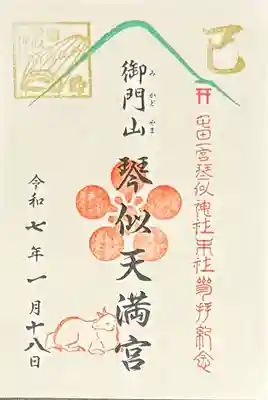 巳
琴似神社末社参拝紀念
御門山 琴似天満宮
みかどやま
令和七年一月十八日